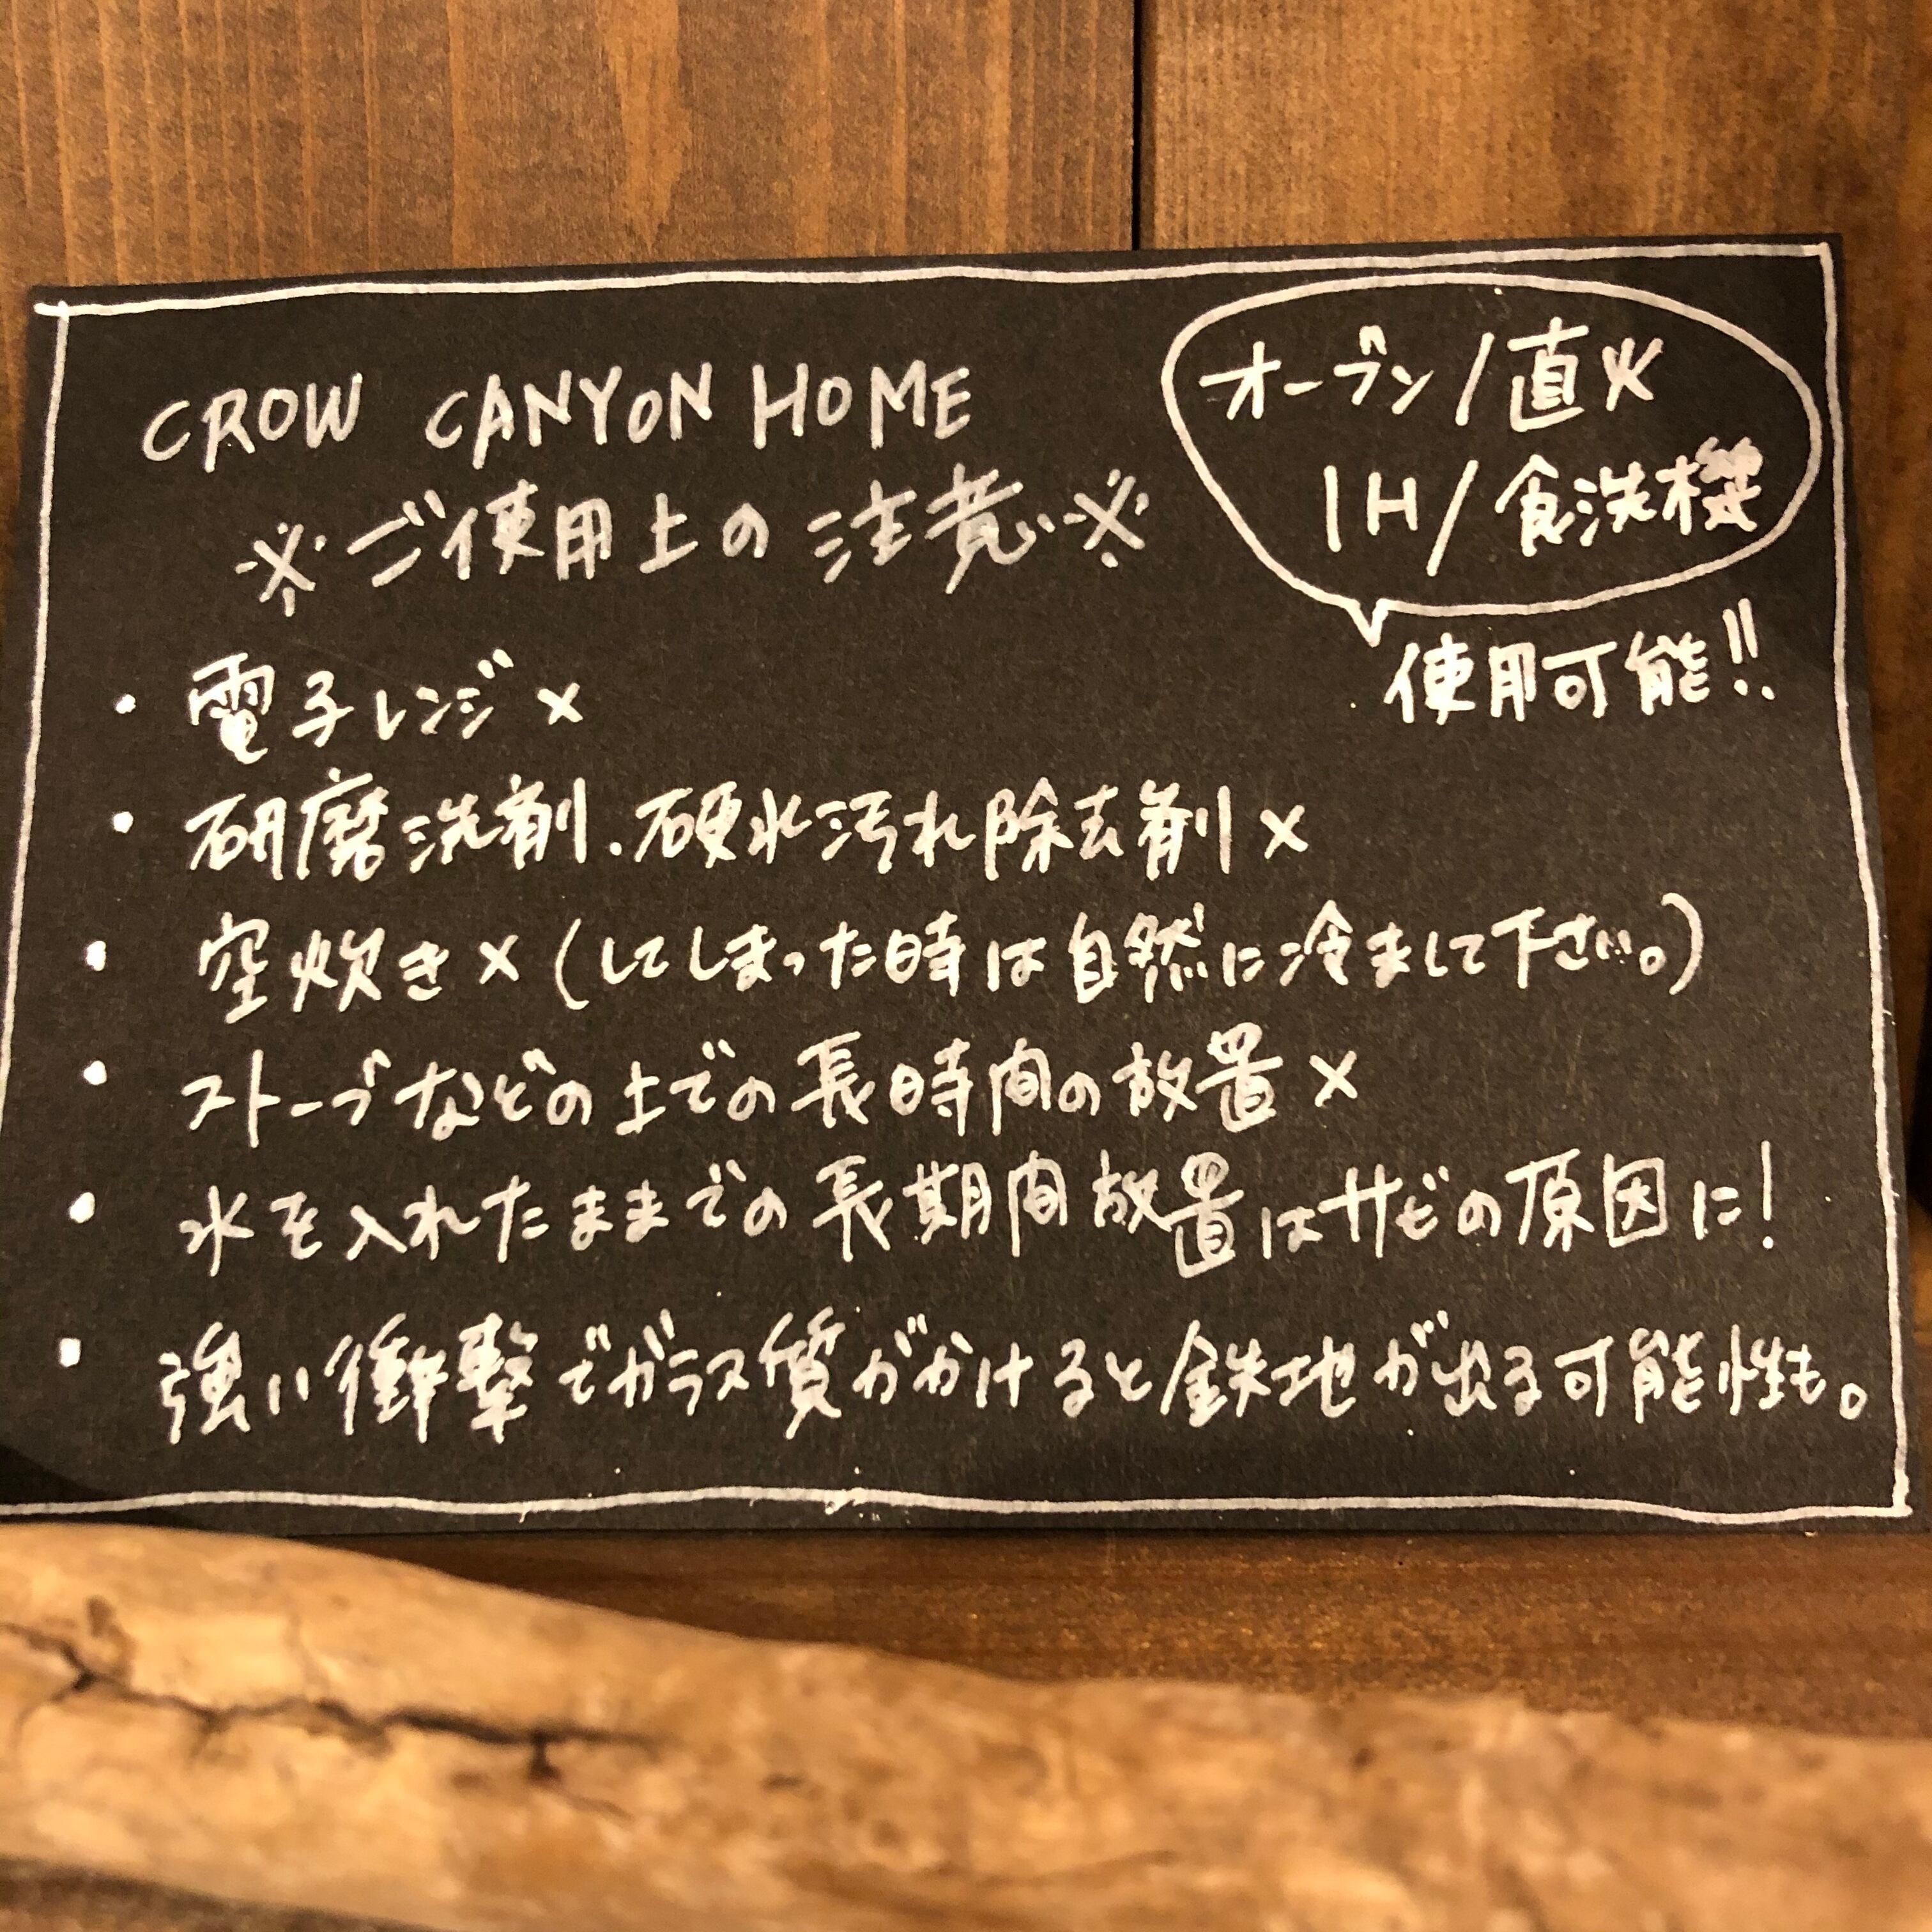 CROW CANYON HOME
※ご使用上の注意※
オーブン/直火
IH/食洗機
使用可能!!
・電子レンジ×
・研磨洗剤.硬水汚れ除去剤×
・空炊き×(してしまった時は自然に冷まして下さい。)
・ストーブなどの上での長時間の放置×
・水を入れたままでの長期間放置はサビの原因に!
・強い衝撃でガラス質がかけると鉄地が出る可能性も。